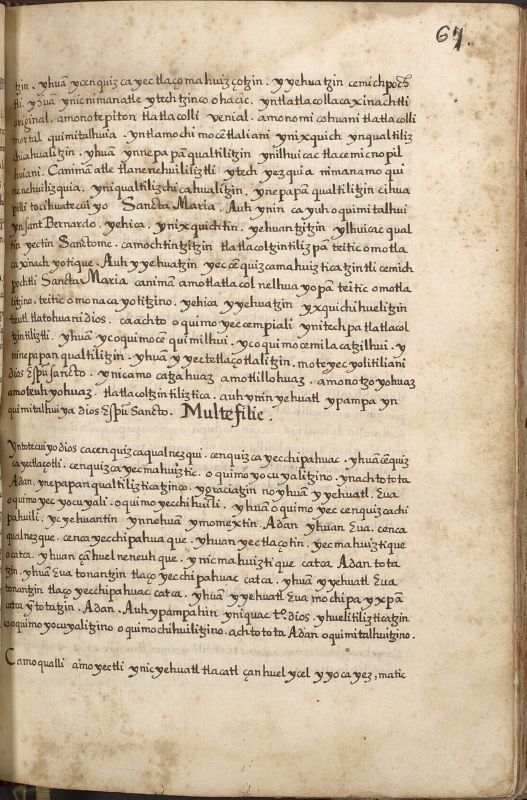 67.
tzin. yhuā ycenquizca yectlaçomahuizçotzin. yyehuatzin cemichpoch
tli. ynic nimanatle ytechtzinco ohacic. yntlatlacolla caxinachtli
original. amono tepiton tlatlacolli venial. amonomi cohuani tlatlacolli
mortal quimitalhuia. yntlamochi mocētlaliani ynixquich ynqualtiliz
chicahualiztin. yhuan ynnepapā qualtiliztin ynilhuicac tlacemicnopil
huiani. Canimā atle tlanenehuililiztli ytech yezquia nimanamo qui
nenehuilizquia. yniqualtilizchicahualiztin. ynepapan qualtiliztin cihua
pilli tocihuatecuiyo Sancta Maria. Auh ynin ca yuh oquimitalhui
ynsant Bernardo. yehica. ynixquichtin. yehuantzitzin ylhuicac qual
tin yectin Sanctome. camochtintzitzin tlatlacoltzintilizpā teitic omotla
caxinachyotique. Auh yyehuatzin yçe cē quizcamahuizticatzintli cemich
pochtli Sancta Maria canimā amotlatlacolnelhuayopā teitic omotla
litzino. teitic omonacayotitzino. yehica yyehuatzin yxquichihuelitzin
teutl tlatohuani dios. caachto oquimoyeccempiali ynitechpa tlatlacol
tzintiliztli. yhuā ycoquimocēquimilhui. ycoquimocemilacatzilhui. y
ninepapan qualtiliztin. yhuā yyectetlaçotlaliztin. moteyecyolitiliani
dios Espū sancto. ynicamo catzahuaz amotlillohuaz. amonotzoyohuaz
amoteuhyohuaz. tlatlacoltzintiliztica. auh ynin yehuatl ypampa yn
quimitalhuiya dios Espū Sancto. Multefilie.
Yntotecuiyo dios cacenquizcaqualnezqui. cenquizca yecchipahuac. yhuā cēquiz
ca yectlaçotli. cenquizca yecmahuiztic. oquimoyocuyalitzino. ynachtotota
Adan. ynepapan qualtiliztica tzinco. ygraciatzin no yhuā yyehuatl. Eua
oquimoyecyocuyali. oquimoyecchihuili. yhuā oquimoyec cenquizcachi
pahuili. ycyehuantin ynnehuā ymomextin. Adan yhuan Eua. cenca
qualnezque. cenca yecchipahuaque. yhuan yectlaçotin. yecmahuiztique
ocatca. yhuan çāhuel neneuhque. ynicmahuiztique catca Adan tota
tzin. yhuā Eua tonantzin tlaço yecchipahuac catca. yhuā yyehuatl Eua
tonantzin tlaço yecchipahuac catca. yhuā yyehuatl Eua mochipa yxpā
catca ỹtotatzin. Adan. Auh ypampahin yniquac tº. dios. yhuelitiliztica tzin
co oquimoyocuyalitzino oquimochihuilitzino. achtotota Adan oquimitalhuitzino.
Camoqualli amoyectli ynicyehuatl tlacatl çanhuel ycel yyoca yez, matic